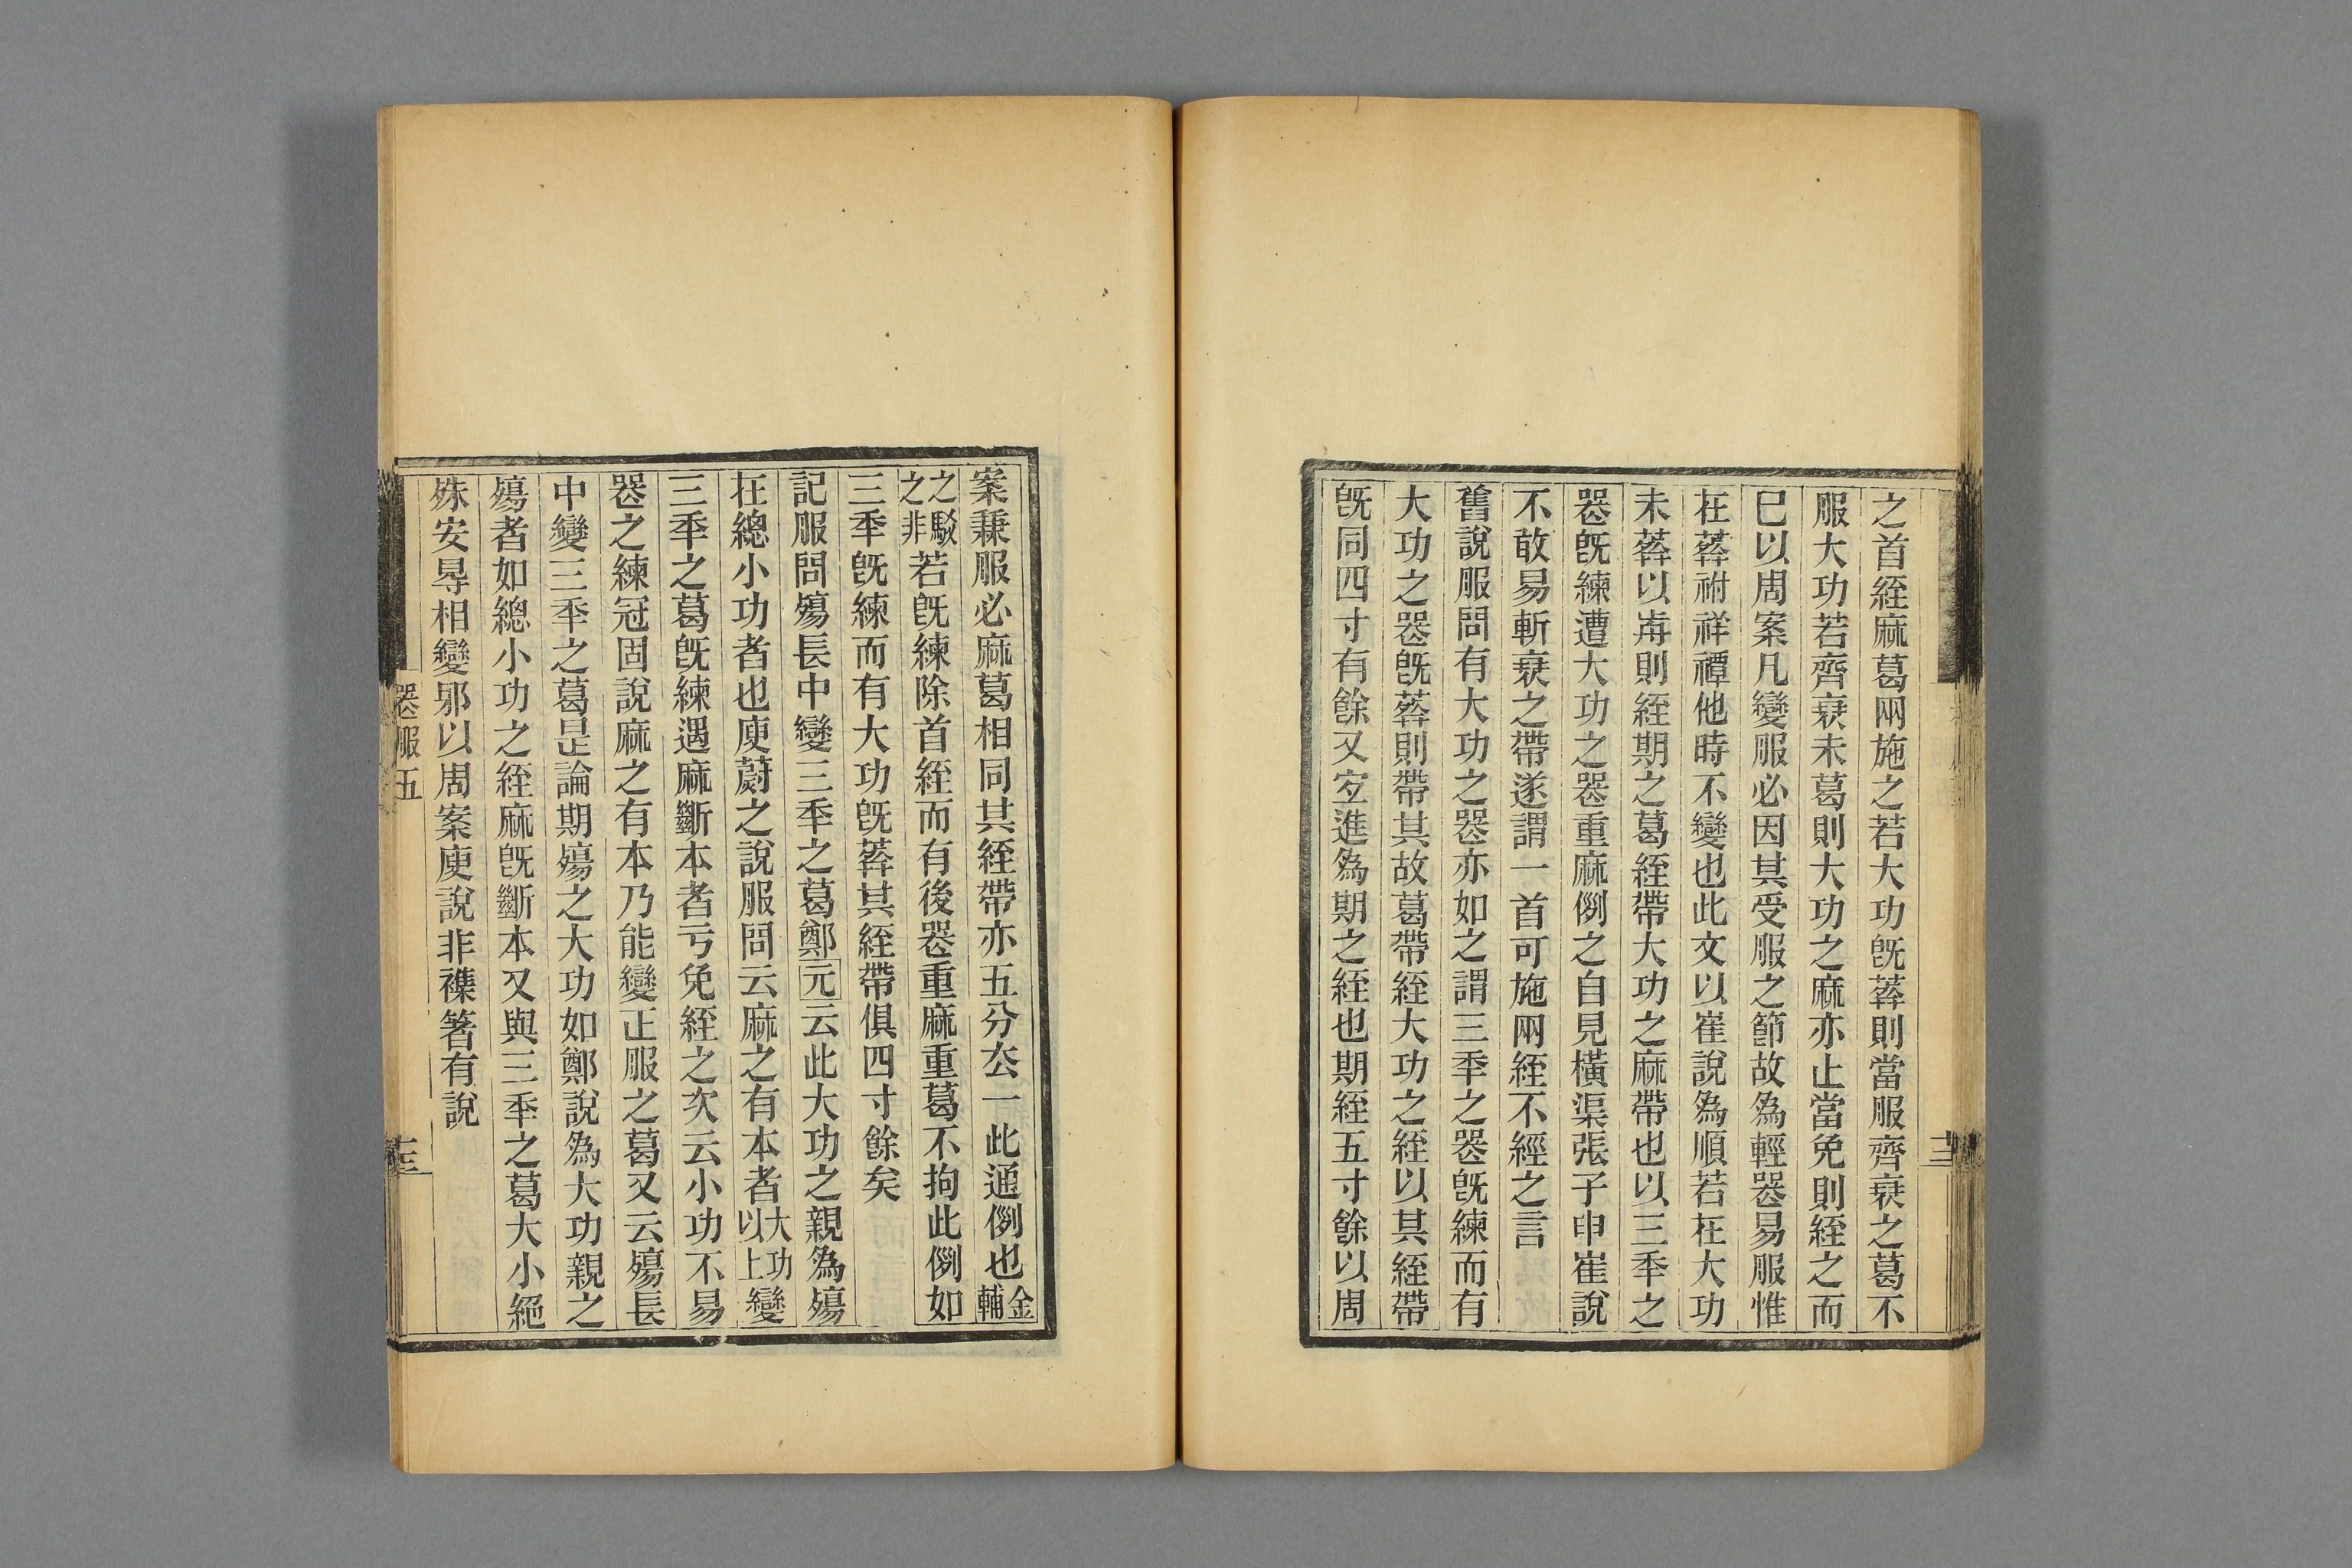 之首絰麻葛网施之若大功旣葬則當服齊衰之葛不
服大功若齊衰未葛則大功之麻亦止當免則絰之而
已以周案凡變服必因其受服之節故爲輕喪易服惟
在葬祔祥禫他時不變也此文以崔說爲順若在大功
未葬以前則絰期之葛絰帶大功之麻帶也以三秊之
喪旣練遭大功之喪重麻例之自見橫渠張子申崔說
不敢易斬衰之帶遂謂一首可施网絰不經之言
舊說服問有大功之喪亦如之謂三秊之喪旣練而有
大功之喪旣葬則帶其故葛帶絰大功之絰以其絰帶
旣同四寸有餘又宐進爲期之絰也期絰五寸餘以周
案兼服必麻葛相同其絰帶亦五分去一此通例也金輔
之駁之非若旣練除首絰而有後喪重麻重葛不拘此例如
三秊旣練而有大功旣葬其絰帶俱四寸餘矣
記服問殤長中變三秊之葛鄭元云此大功之親爲殤
在緦小功者也庾蔚之說服問云麻之有本者大功以上變
三秊之葛旣練遇麻斷本者亏免絰之次云小功不易
喪之練冠固說麻之有本乃能變正服之葛又云殤長
中變三秊之葛是論期殤之大功如鄭說爲大功親之
殤者如緦小功之絰麻旣斷本又與三秊之葛大小絕
殊安㝵相變邪以周案庾說非襍箸有說
喪服五
十三